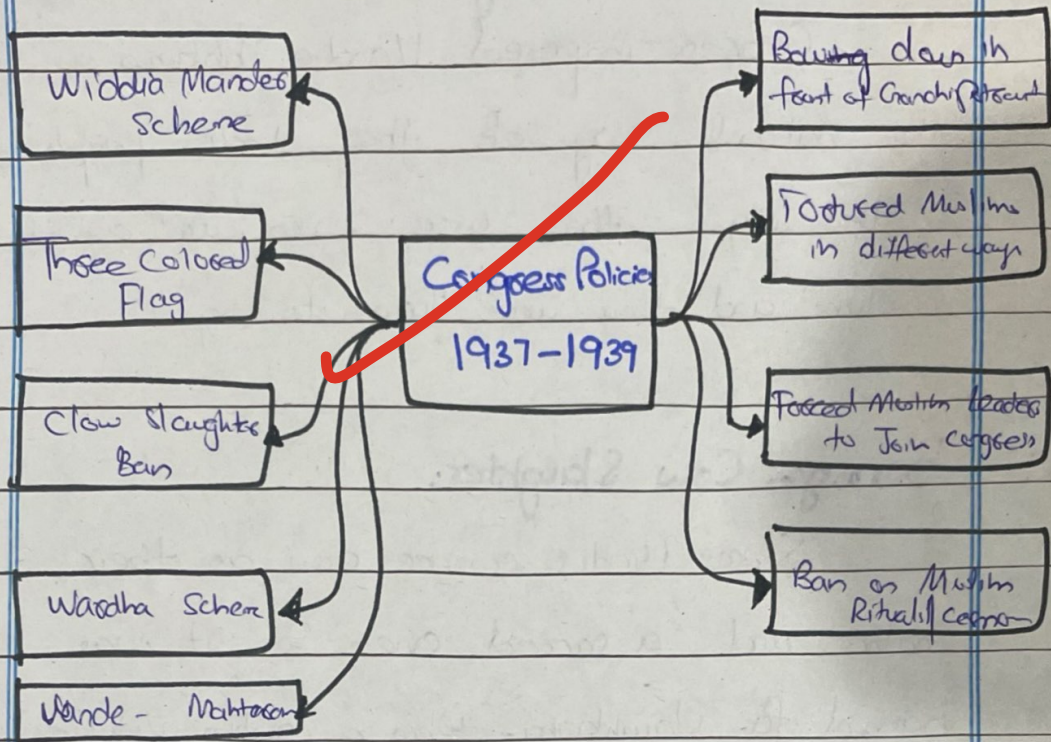 Widdia Mander
Scheme
Three Colored
Flag
Clow Slaughter
Ban
Wardha Scheme
Vande - Mahtaram
Congress Policies
1937-1939
Bowing down in
front of Gandhi's
Tortured Muslims
in different ways
Forced Muslim leader
to Join congress
Ban on Muslim
Rituals/